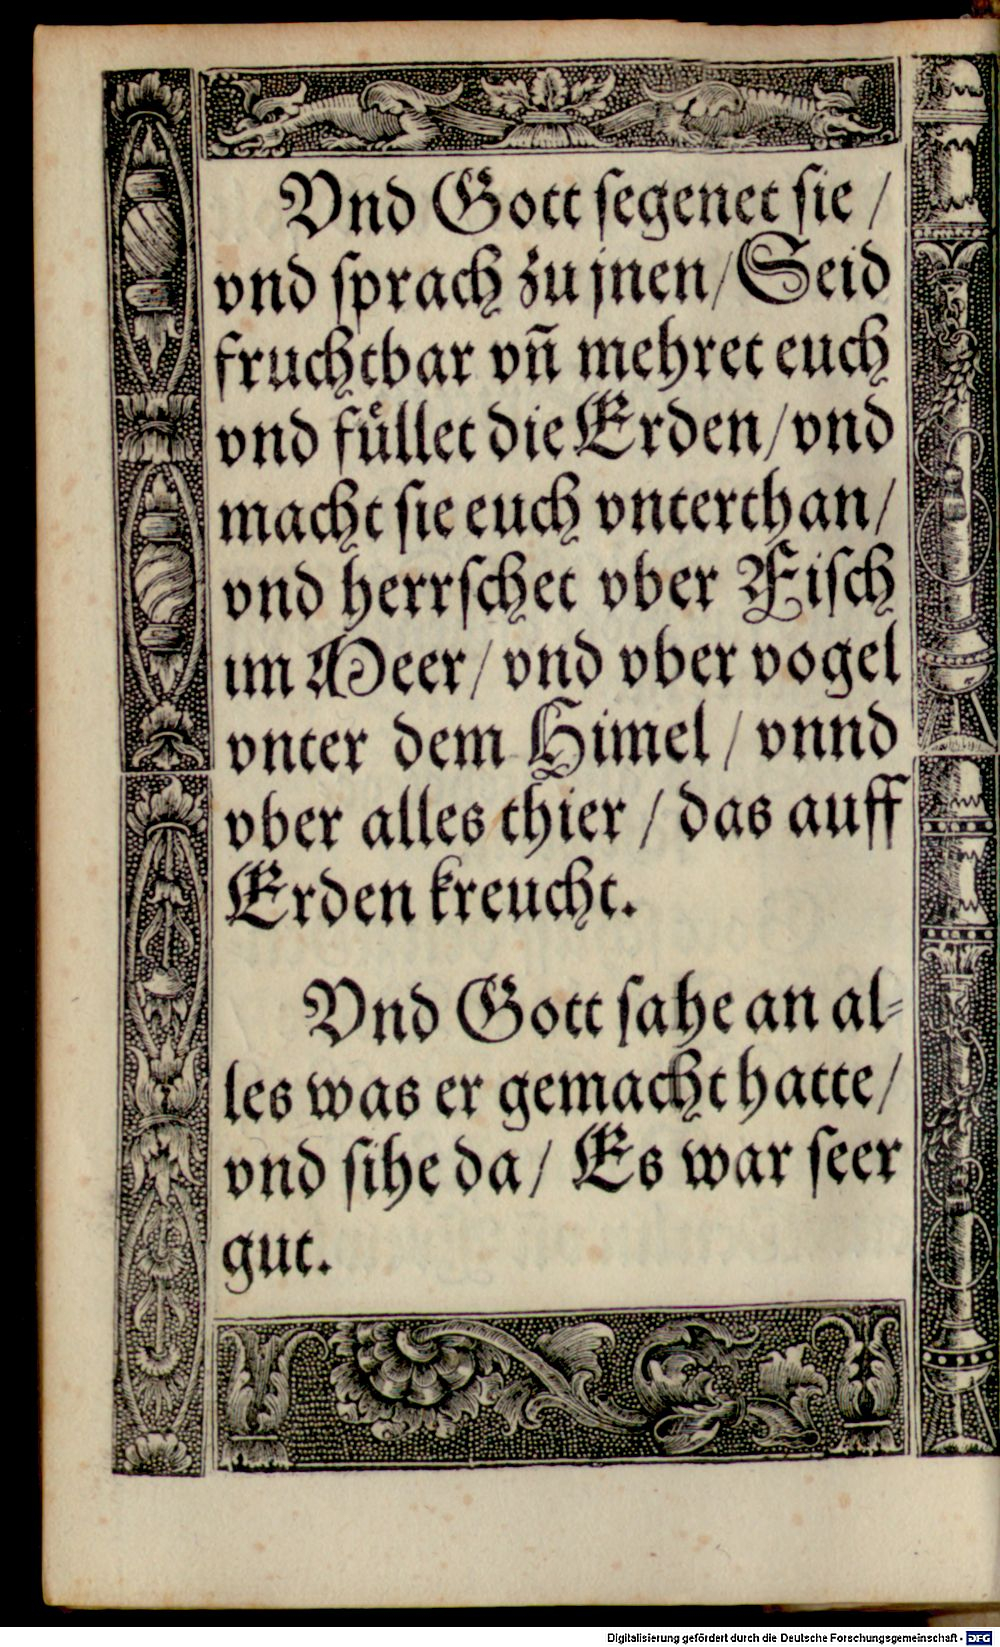 Vnd Gott segenet sie /
vnd sprach zu jnen / Seid
fruchtbar vn̄ mehret euch
vnd fuͤllet die Erden / vnd
macht sie euch vnterthan /
vnd herrschet vber Fisch
im Meer / vnd vber vogel
vnter dem Himel / vnnd
vber alles thier / das auff
Erden kreucht.
Vnd Gott sahe an al-
les was er gemacht hatte /
vnd sihe da / Es war seer
gut.
Digitalisierung gefördert durch die Deutsche Forschungsgemeinschaft - DFG